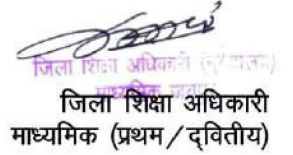 जिला शिक्षा अधिकारी
माध्यमिक
जिला शिक्षा अधिकारी
माध्यमिक (प्रथम/द्वितीय)